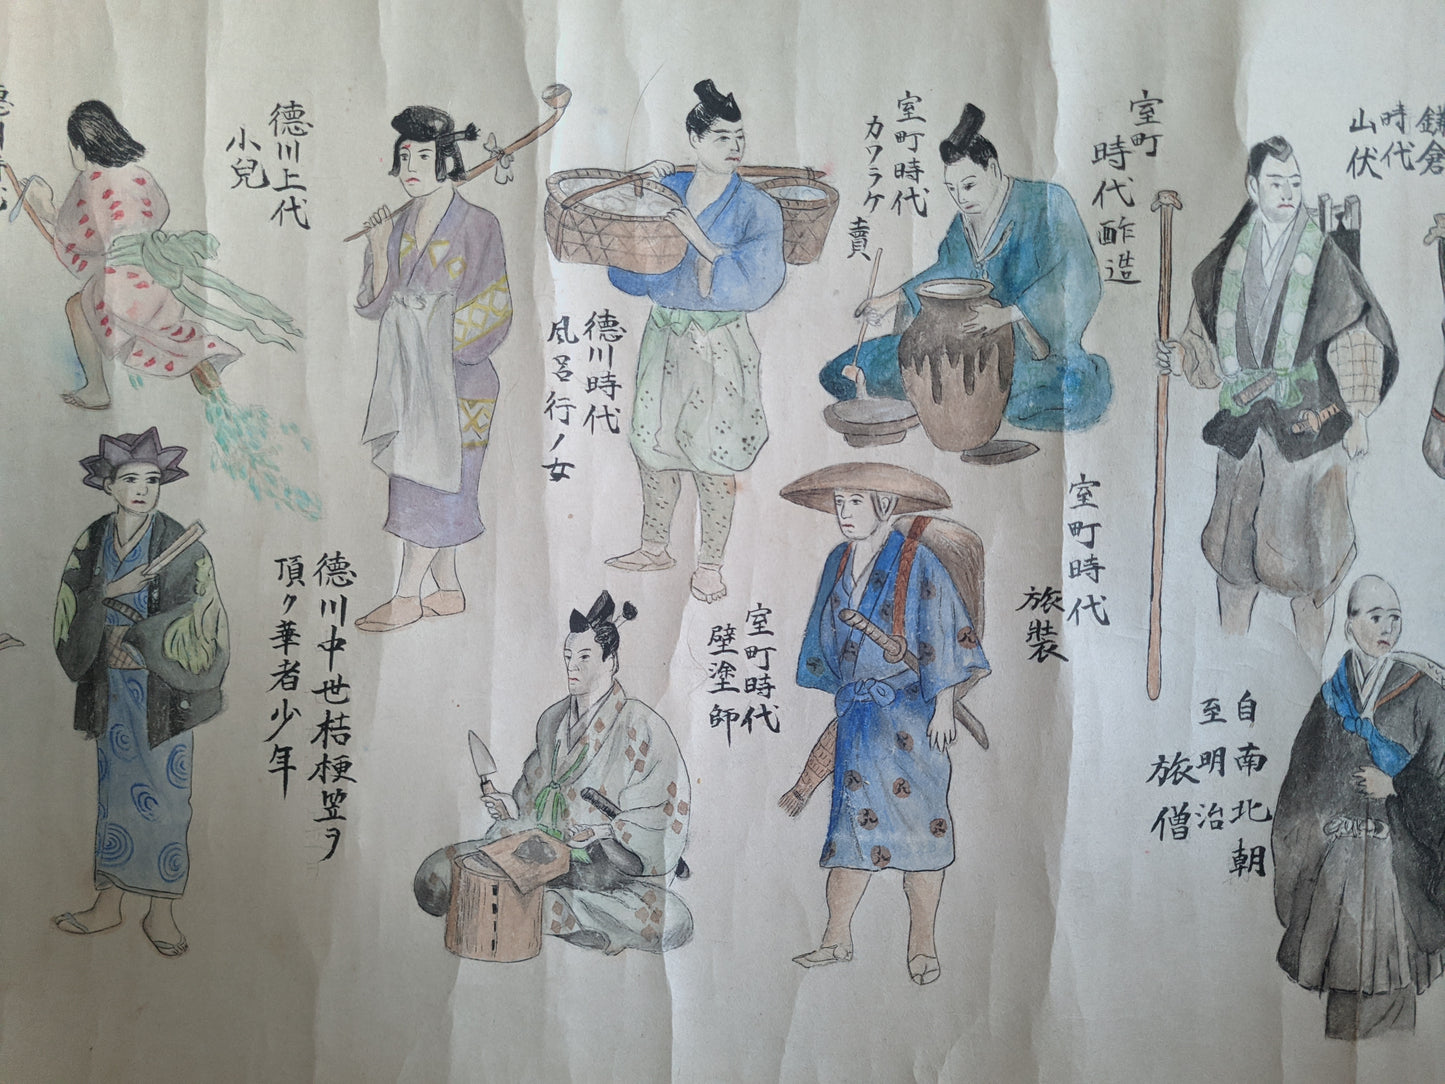 鎌倉
時代
山伏
室町
時代
酢造
室町時代
カワラケ賣
德川上代
小兒
自南北朝
至明治
旅僧
室町時代
旅裝
室町時代
壁塗師
德川時代
風呂行ノ女
德川中世桔梗笠ヲ
頂ク華者少年